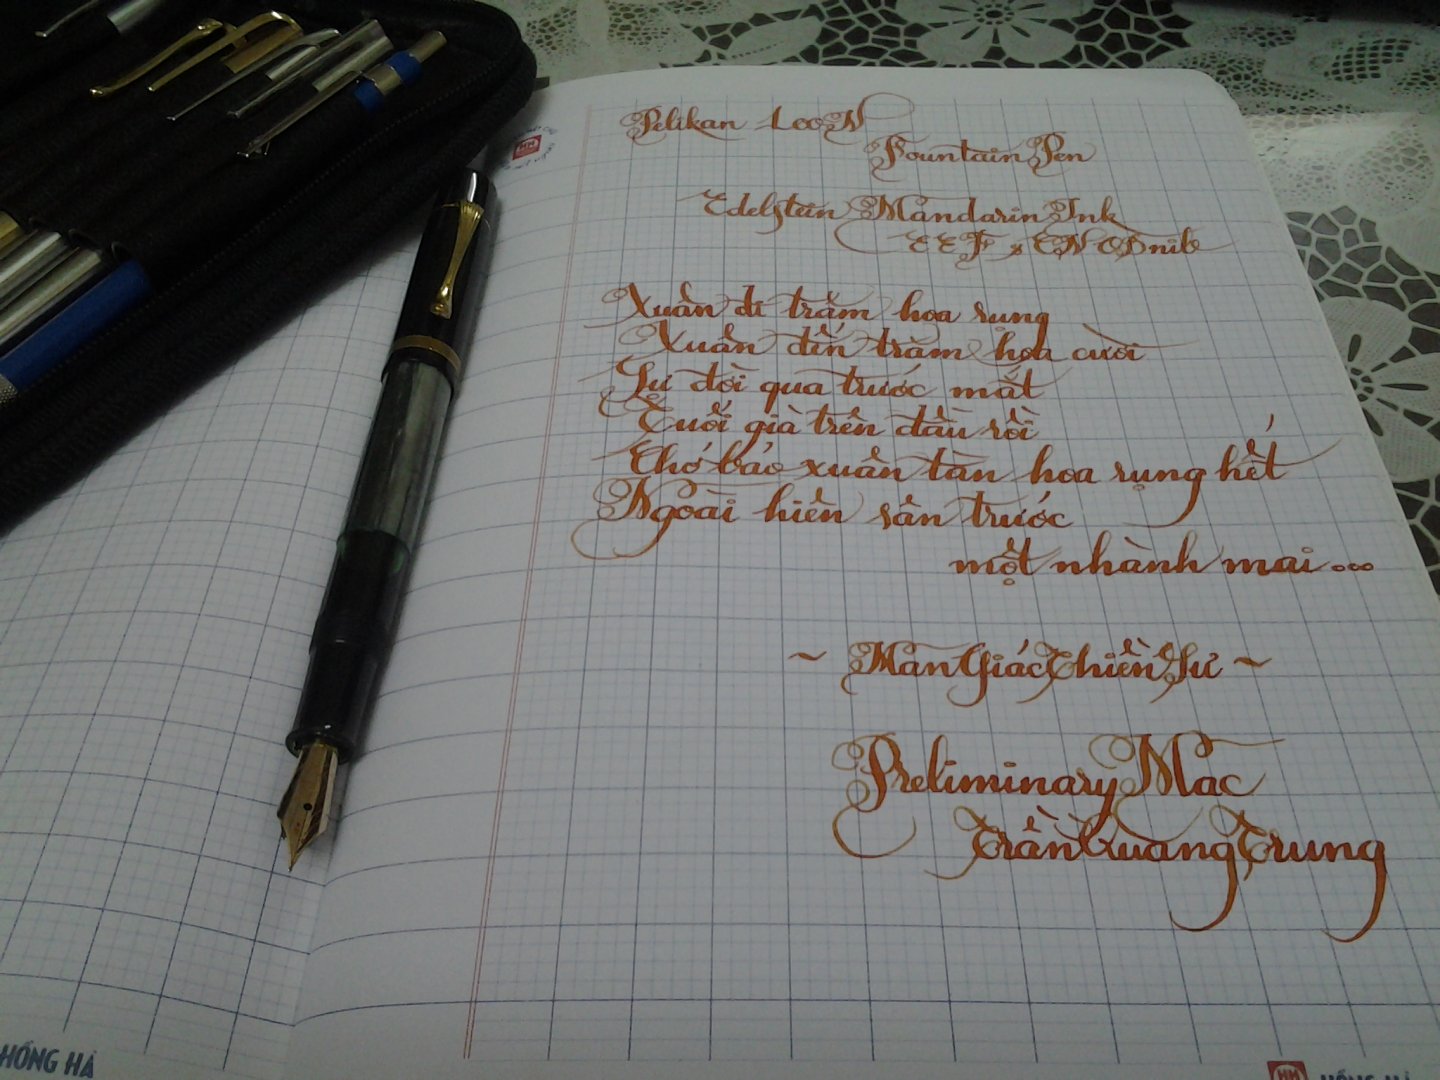 Pelikan 400N
Fountain Pen
Edelstein Mandarin Ink
EEF nib
Xuân đi trăm hoa rụng
Xuân đến trăm hoa cười
Sự đời qua trước mắt
Tuổi già trên đầu rồi
Chớ bảo xuân tàn hoa rụng hết
Ngoài hiên sân trước
một nhành mai...
~ Mãn Giác Thiền Sư ~
Preliminary Mac
Trần Quang Trung
HỒNG HÀ
HH HỒNG HÀ